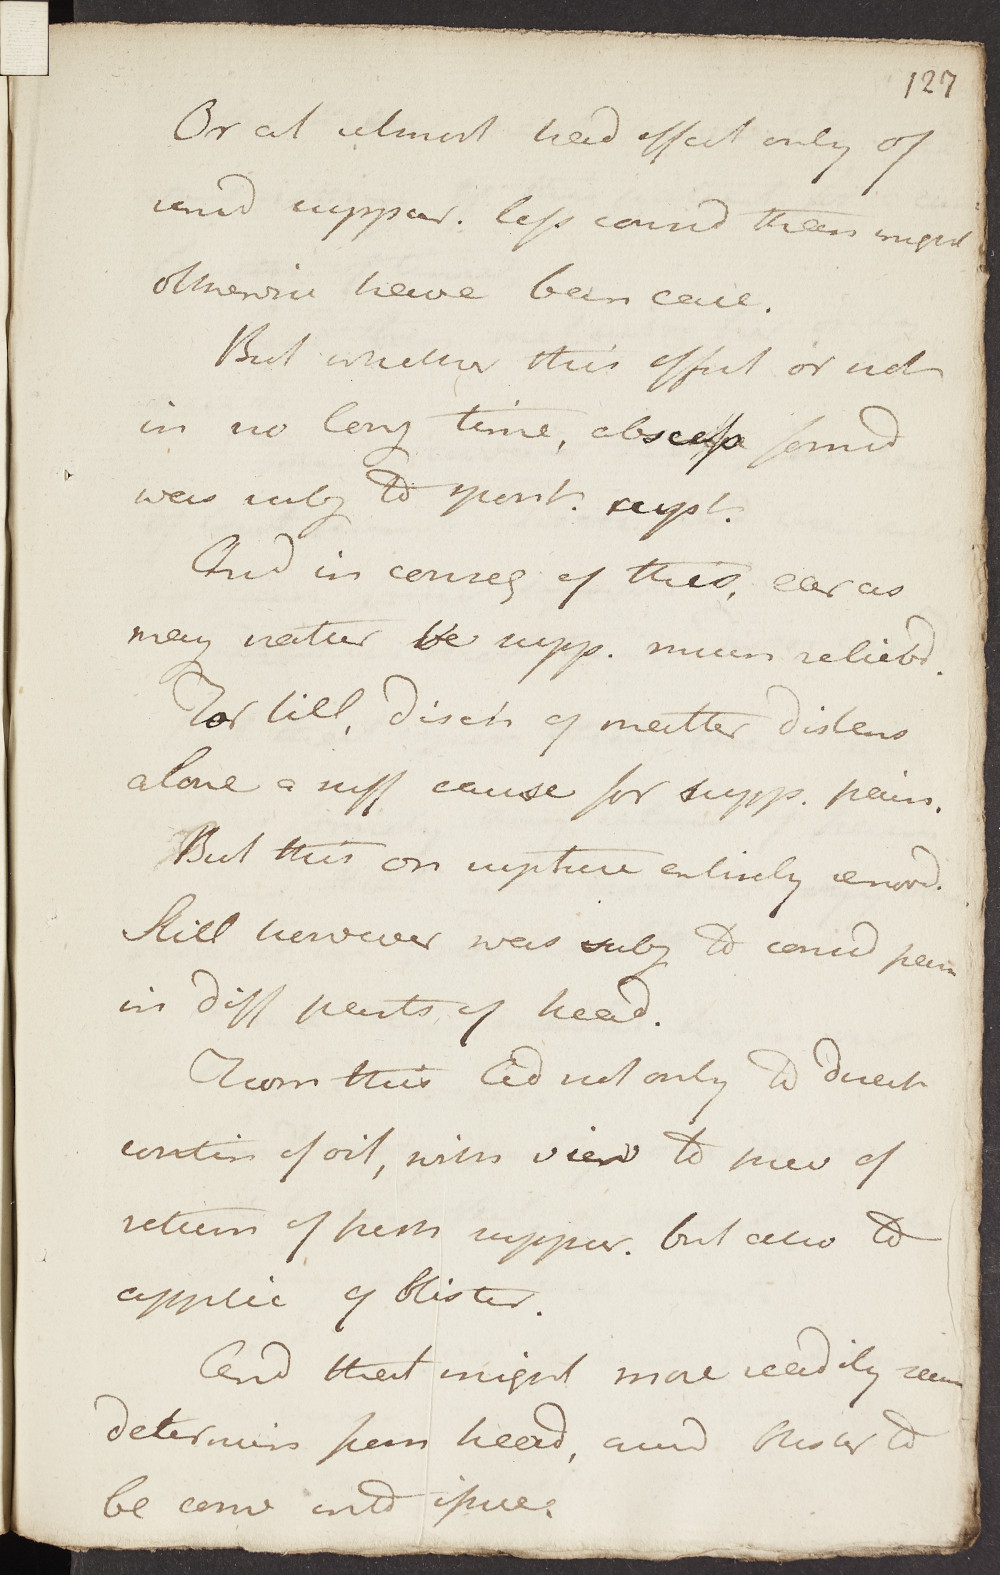 127
Or at utmost had effect only of
rend suppur. less consid than might
otherwise have been case.
But whether this effect or not
in no long time, abscess formd
was subj to spont. rupt.
And in conseq of this, ear as
may natur be supp. much relievd.
For till, disch of matter distens
alone a suff cause for supp. pain.
But this on rupture entirely removd.
Still however was subj to consid pain
in diff parts of head.
From this led not only to direct
contin of oil, with view to prev of
return of fresh suppur. but also to
applic of blister.
And that might more readily
determin from head, blister to
be conv into issue.